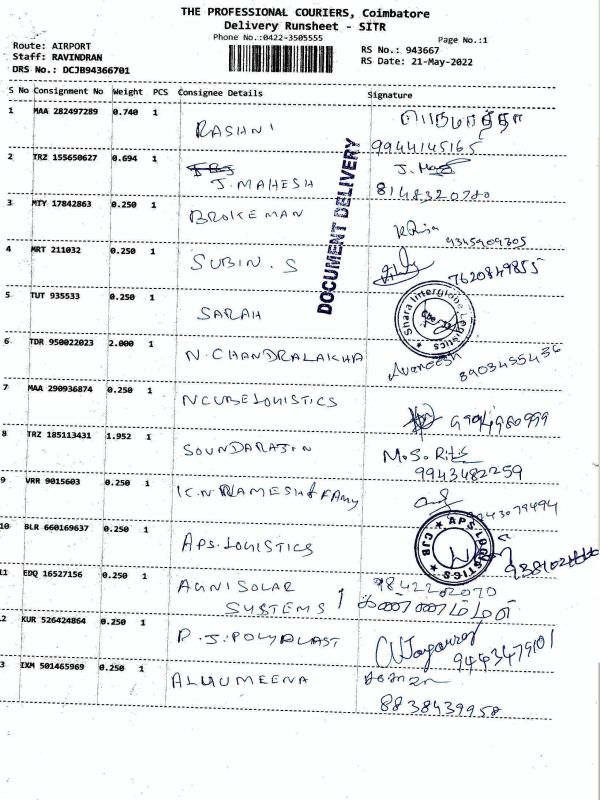 THE PROFESSIONAL COURIERS, Coimbatore
Delivery Runsheet - SITR
Phone No.:0422-3505555
Page No.:1
Route: AIRPORT
Staff: RAVINDRAN
DRS No.: DCJB94366701
RS No.: 943667
RS Date: 21-May-2022
S No Consignment No Weight PCS Consignee Details Signature
1 MAA 282497289 0.740 1 RASHNI
9944145165
2 TRZ 155650627 0.694 1 J. MAHESH
8148320780
DOCUMENT DELIVERY
3 MTY 17842863 0.250 1 BROKEMAN
9345909305
4 MRT 211032 0.250 1 SUBIN. S
7620849855
5 TUT 935533 0.250 1 SARAH
Shara Interglobe Logistics
6 TDR 950022023 2.000 1 N. CHANDRALAKHA
8903455436
7 MAA 290936874 0.250 1 NCUBELOGISTICS
8 TRZ 185113431 1.952 1 SOUNDARAJN
M.S.
9943482259
9 VRR 9015603 0.250 1 K.N RAMESH & FAmy
9243079494
10 BLR 660169637 0.250 1 APS.LOGISTICS
APS LOGISTICS CJB
11 EDQ 16527156 0.250 1 AGNISOLAR
SYSTEMS
9842202070
2 KUR 526424864 0.250 1 P.J.POLYPLAST
9443479101
3 IXM 501465969 0.250 1 ALHUMEENA
8838439958